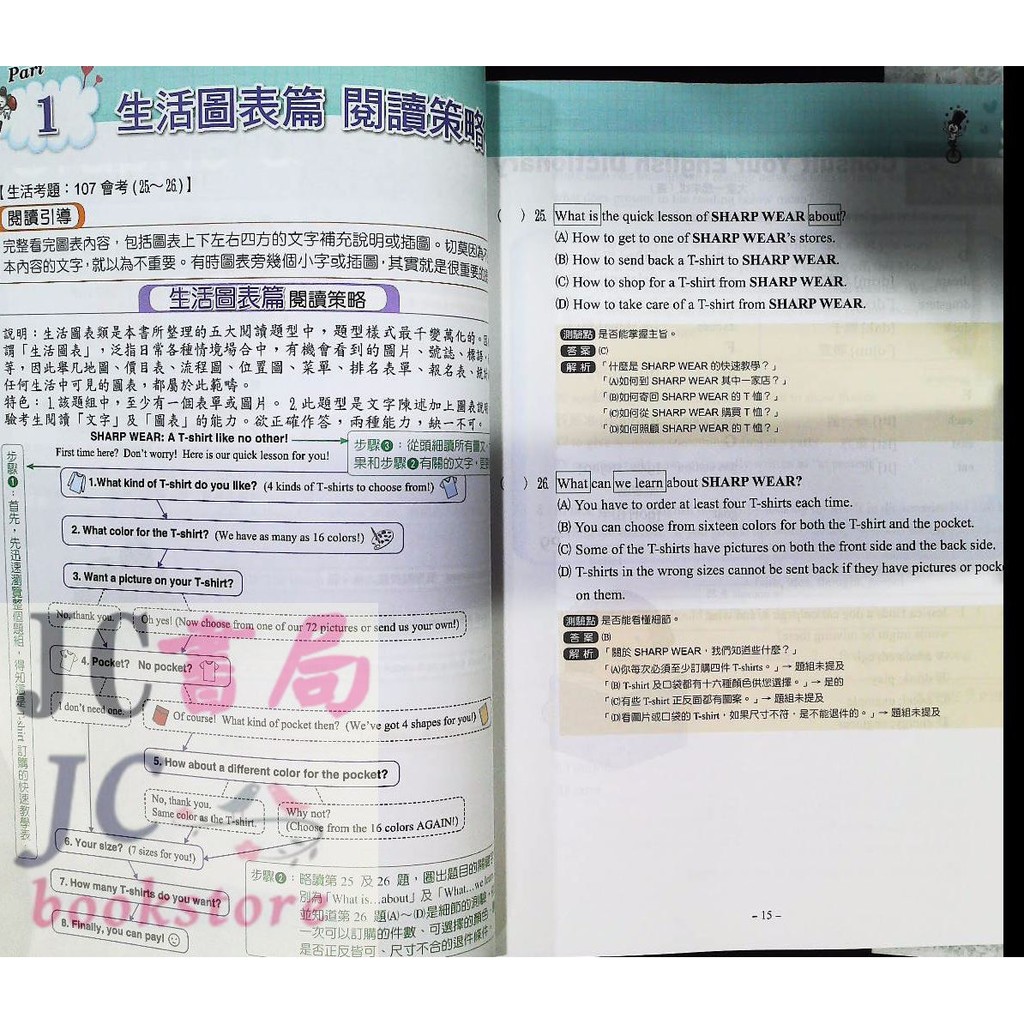 Part
1
生活圖表篇 閱讀策略
【生活考題：107 會考 (25.～26.)】
閱讀引導
完整看完圖表內容，包括圖表上下左右四方的文字補充說明或插圖。切莫因為不
本內容的文字，就以為不重要。有時圖表旁幾個小字或插圖，其實就是很重要的
生活圖表篇 閱讀策略
說明：生活圖表類是本書所整理的五大閱讀題型中，題型樣式最千變萬化的。
謂「生活圖表」，泛指日常各種情境場合中，有機會看到的圖片、號誌、標語
等，因此舉凡地圖、價目表、流程圖、位置圖、菜單、排名表單、報名表、統計
任何生活中可見的圖表，都屬於此範疇。
特色：1.該題組中，至少有一個表單或圖片。2.此題型是文字陳述加上圖表說明
驗考生閱讀「文字」及「圖表」的能力。欲正確作答，兩種能力，缺一不可。
SHARP WEAR: A T-shirt like no other!
First time here? Don't worry! Here is our quick lesson for you!
步驟❸：從頭細讀所有圖文
果和步驟❷有關的文字，
步驟❶：首先，先迅速瀏覽整個題組，得知這是 T-shirt 訂購的快速教學表
1.What kind of T-shirt do you like? (4 kinds of T-shirts to choose from!)
2. What color for the T-shirt? (We have as many as 16 colors!)
3. Want a picture on your T-shirt?
No, thank you.
Oh yes! (Now choose from one of our 72 pictures or send us your own!)
4. Pocket? No pocket?
I don't need one.
Of course! What kind of pocket then? (We've got 4 shapes for you!)
5. How about a different color for the pocket?
No, thank you.
Same color as the T-shirt.
Why not?
(Choose from the 16 colors AGAIN!)
6. Your size? (7 sizes for you!)
7. How many T-shirts do you want?
8. Finally, you can pay!
步驟❷：略讀第 25 及 26 題，圈出題目的關鍵
別為「What is...about」及「What...we learn
並知道第 26 題(A)～(D)是細節的測驗，
一次可以訂購的件數、可選擇的顏色、
是否正反皆可、尺寸不合的退件條件，
JC書局
JC
bookstore
( ) 25. What is the quick lesson of SHARP WEAR about?
(A) How to get to one of SHARP WEAR's stores.
(B) How to send back a T-shirt to SHARP WEAR.
(C) How to shop for a T-shirt from SHARP WEAR.
(D) How to take care of a T-shirt from SHARP WEAR.
測驗點 是否能掌握主旨。
答案 (C)
解析 「什麼是 SHARP WEAR 的快速教學？」
「(A)如何到 SHARP WEAR 其中一家店？」
「(B)如何寄回 SHARP WEAR 的 T 恤？」
「(C)如何從 SHARP WEAR 購買 T 恤？」
「(D)如何照顧 SHARP WEAR 的 T 恤？」
( ) 26. What can we learn about SHARP WEAR?
(A) You have to order at least four T-shirts each time.
(B) You can choose from sixteen colors for both the T-shirt and the pocket.
(C) Some of the T-shirts have pictures on both the front side and the back side.
(D) T-shirts in the wrong sizes cannot be sent back if they have pictures or pock
on them.
測驗點 是否能看懂細節。
答案 (B)
解析 「關於 SHARP WEAR，我們知道些什麼？」
「(A)你每次必須至少訂購四件 T-shirts。」→ 題組未提及
「(B) T-shirt 及口袋都有十六種顏色供您選擇。」→ 是的
「(C)有些 T-shirt 正反面都有圖案。」→ 題組未提及
「(D)若圖片或口袋的 T-shirt，如果尺寸不符，是不能退件的。」→ 題組未提及
- 15 -